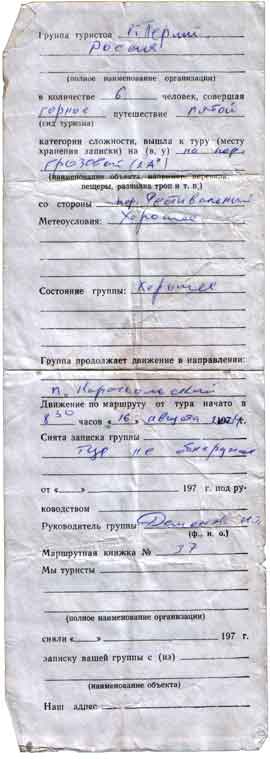 Группа туристов г. Пермь
Россия
(полное наименование организации)
в количестве 6 человек, совершая
горное путешествие пятой
(вид туризма)
категории сложности, вышла к туру (месту
хранения записки) на (в, у) на пер.
Грозовой (2А)
(наименование объекта, например: перевала,
пещеры, развилка троп и т. п.)
со стороны пер. Фестивальный
Метеоусловия: Хорошие
Состояние группы: Хорошее
Группа продолжает движение в направлении:
п.
Движение по маршруту от тура начато в
8 30 часов «16» августа 197 г.
Снята записка группы
Тур не обнаружен
от «____» 197 г. под ру-
ководством
Руководитель группы
(ф., и. о.)
Маршрутная книжка № 37
Мы туристы
(полное наименование организации)
сняли «____» 197 г.
записку вашей группы с (из)
(наименование объекта)
Наш адрес